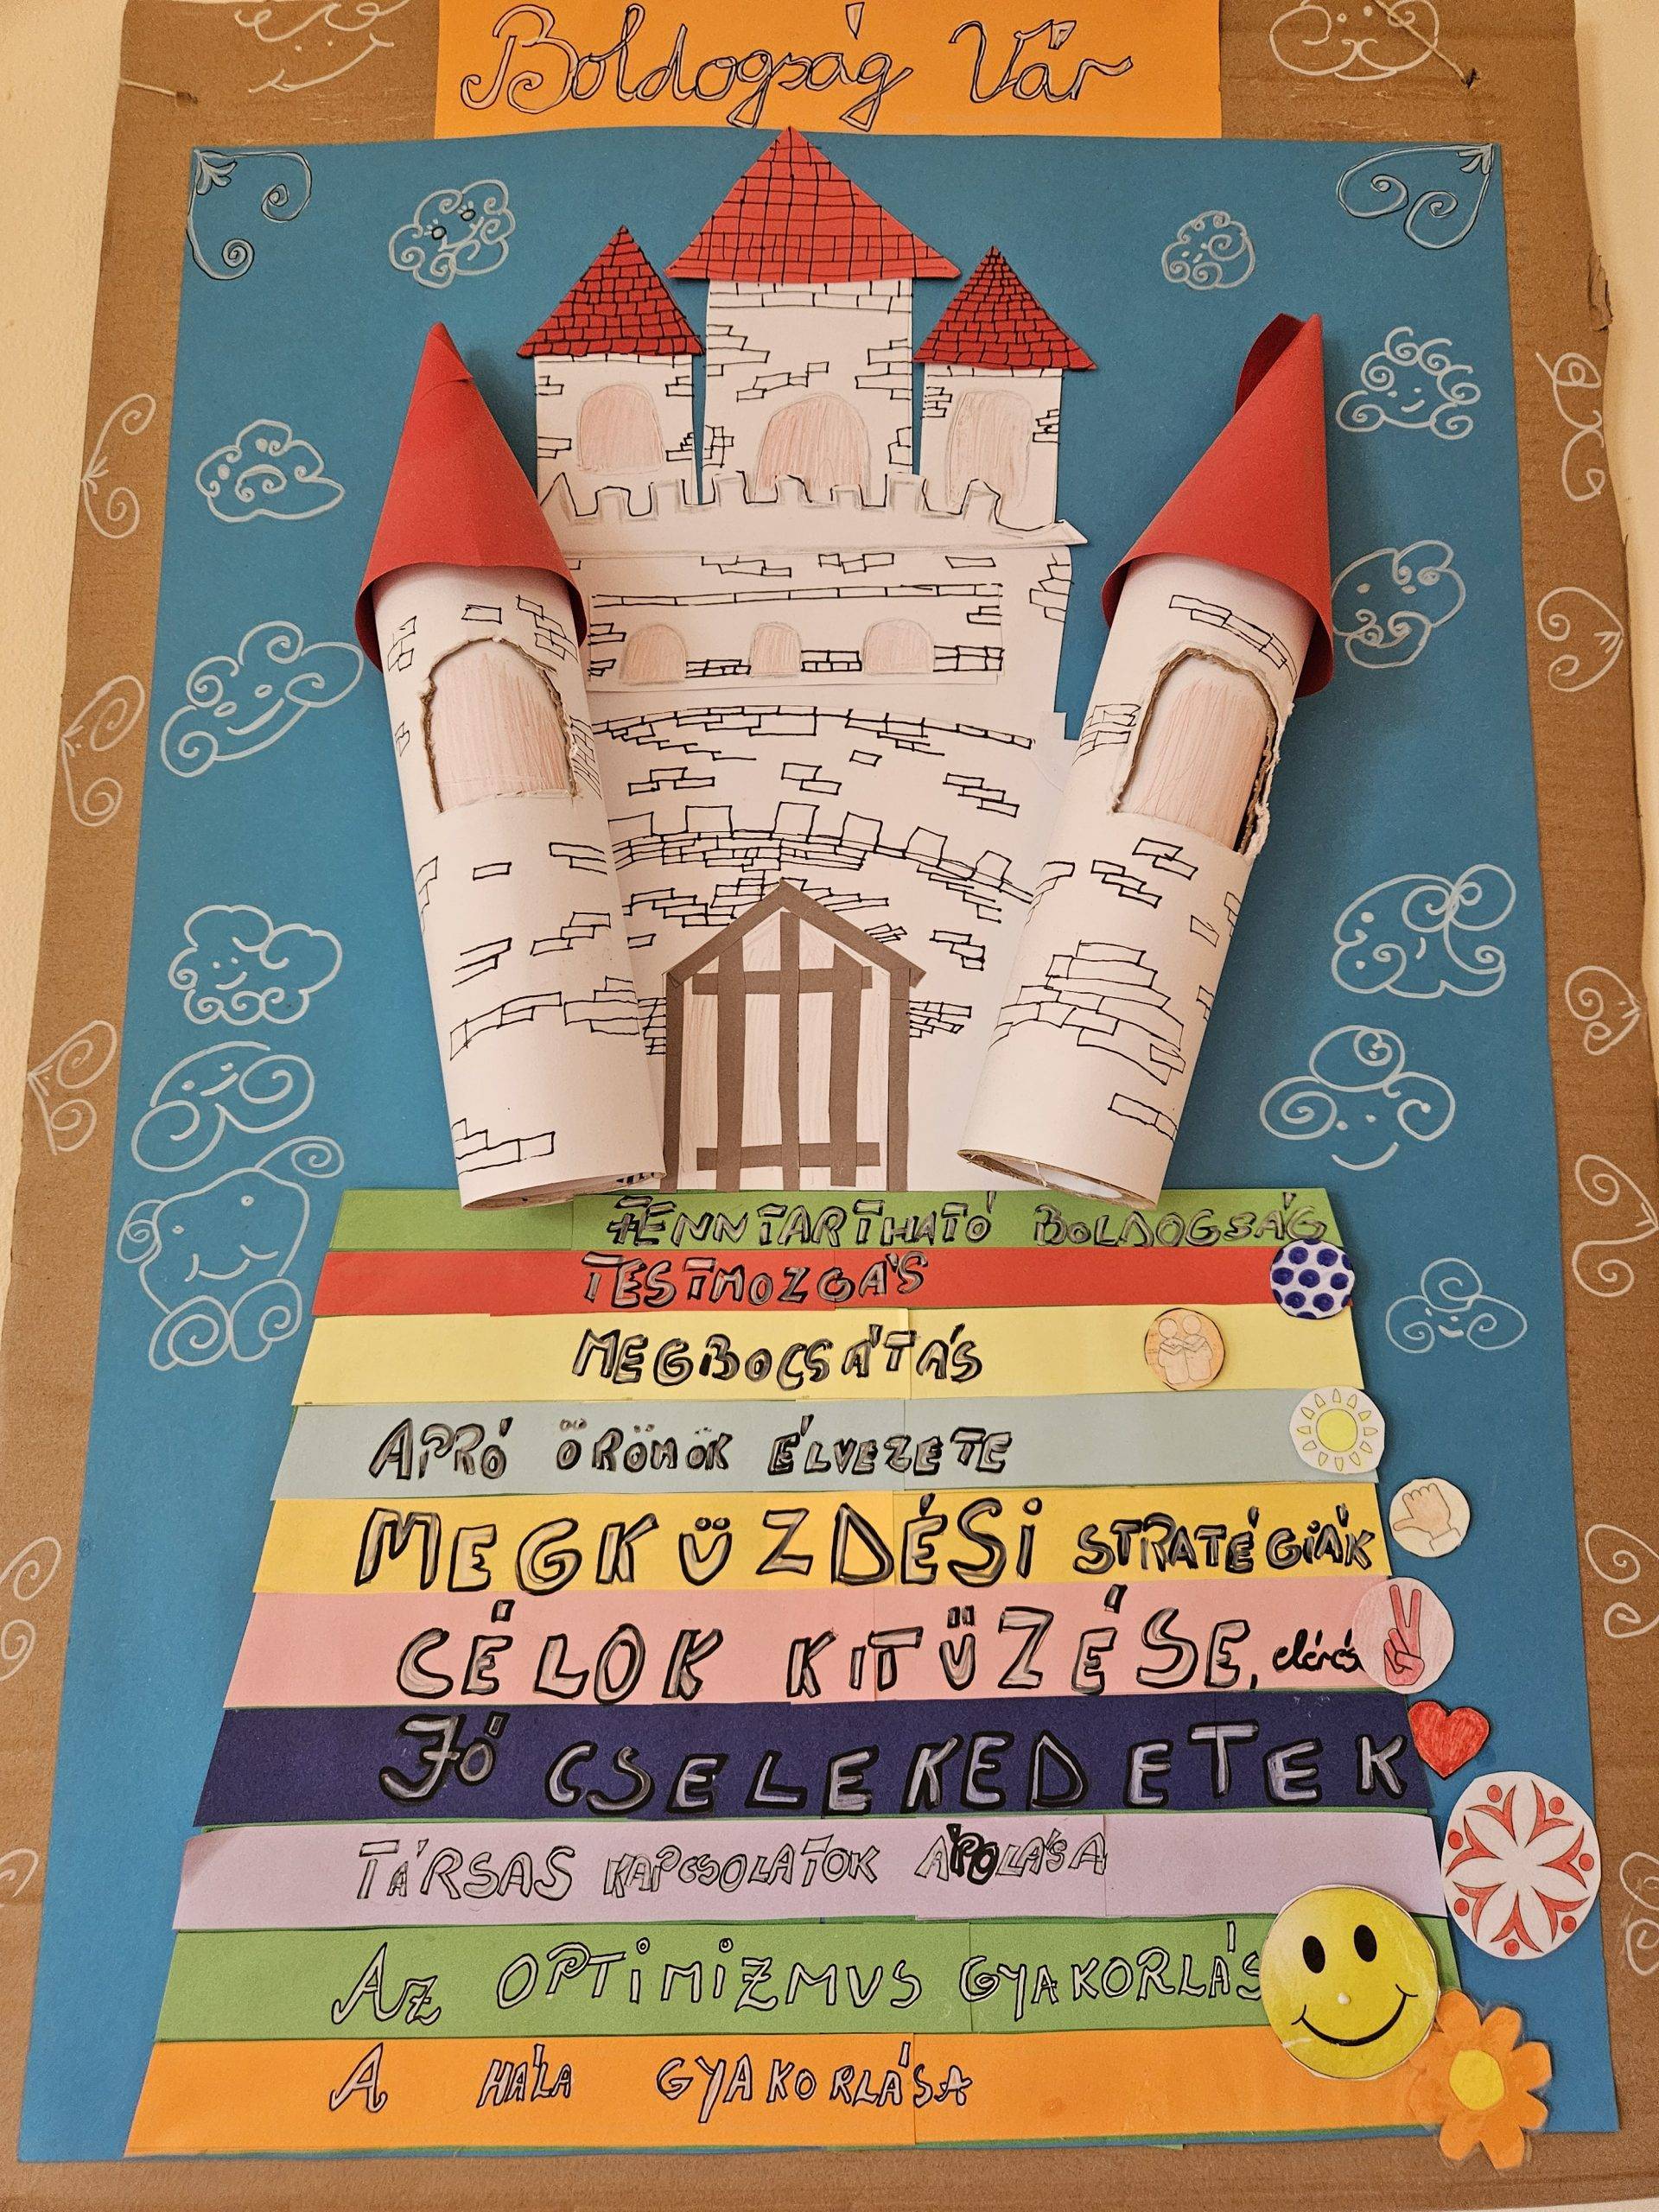 Boldogság Vár
FENNTARTHATÓ BOLDOGSÁG
TESTMOZGÁS
MEGBOCSÁTÁS
APRÓ ÖRÖMÖK ÉLVEZETE
MEGKÜZDÉSI STRATÉGIÁK
CÉLOK KITŰZÉSE, elérés
JÓ CSELEKEDETEK
TÁRSAS KAPCSOLATOK ÁPOLÁSA
AZ OPTIMIZMUS GYAKORLÁS
A HÁLA GYAKORLÁSA